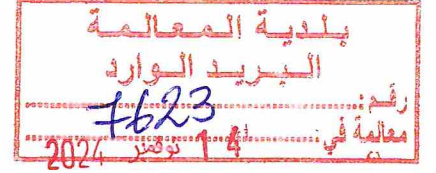 بلدية المعالمة
البريد الوارد
رقم: 7623
معالمة في: 14 نوفمبر 2024